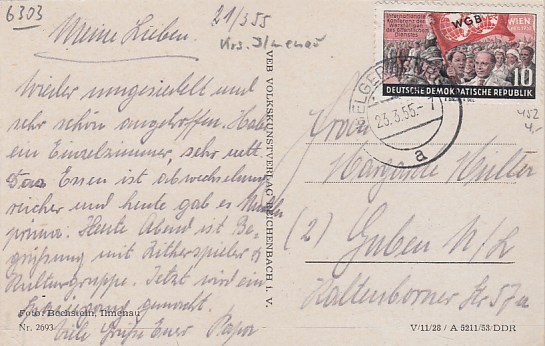 6303
21/3 55
Krs. Ilmenau
Meine Lieben.
Wieder umgesiedelt und
sehr schön angetroffen. Habe
ein Einzelzimmer, sehr nett.
Das Essen ist abwechslungs
reicher und heute gab es
prima. Heute Abend ist Be-
grüßung mit Zitherspieler &
Kulturgruppe. Jetzt wird ein
gemacht.
Viele Grüße Euer Papa
Foto: Bechstein, Ilmenau
Nr. 2693
VEB VOLKSKUNSTVERLAG REICHENBACH I. V.
Internationale
Konferenz der
Werktätigen
des öffentlichen
Dienstes
WGB
WIEN
10
DEUTSCHE DEMOKRATISCHE REPUBLIK
23.3.55
a
452
Frau
Margarete
(2) Guben N/L
Kaltenborner Str 57a
V/11/28 / A 5211/53/DDR